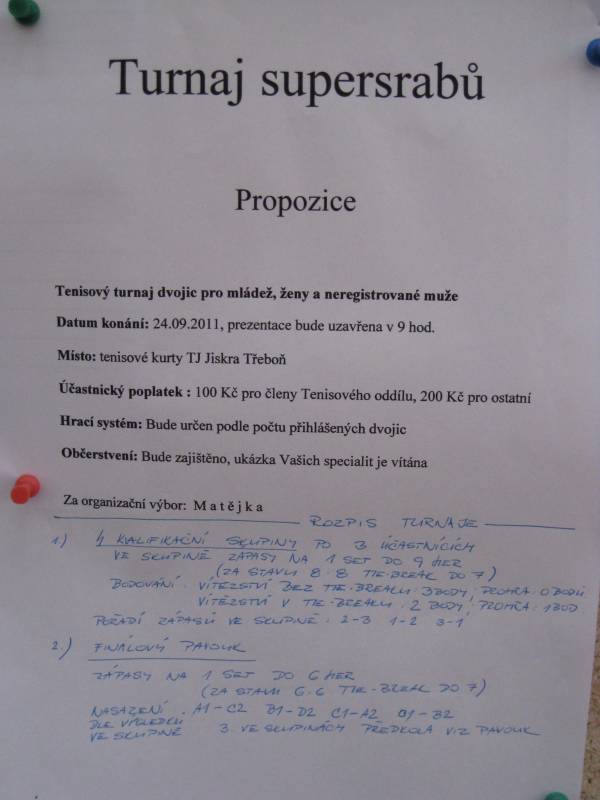 Turnaj supersrabů
Propozice
Tenisový turnaj dvojic pro mládež, ženy a neregistrované muže
Datum konání: 24.09.2011, prezentace bude uzavřena v 9 hod.
Místo: tenisové kurty TJ Jiskra Třeboň
Účastnický poplatek : 100 Kč pro členy Tenisového oddílu, 200 Kč pro ostatní
Hrací systém: Bude určen podle počtu přihlášených dvojic
Občerstvení: Bude zajištěno, ukázka Vašich specialit je vítána
Za organizační výbor: M a t ě j k a
ROZPIS TURNAJE
1) 4 KVALIFIKAČNÍ SKUPINY PO 3 ÚČASTNÍCÍCH
VE SKUPINĚ ZÁPASY NA 1 SET DO 9 HER
(ZA STAVU 8:8 TIE-BREAK DO 7)
BODOVÁNÍ: VÍTĚZSTVÍ BEZ TIE-BREAKU: 3 BODY, PROHRA: 0 BODŮ
VÍTĚZSTVÍ V TIE-BREAKU: 2 BODY, PROHRA: 1 BOD
POŘADÍ ZÁPASŮ VE SKUPINĚ: 2-3 1-2 3-1
2.) FINÁLOVÝ PAVOUK
ZÁPASY NA 1 SET DO 6 HER
(ZA STAVU 6:6 TIE-BREAK DO 7)
NASAZENÍ: A1-C2 B1-D2 C1-A2 D1-B2
DLE VÝSLEDKŮ
VE SKUPINĚ 3. VE SKUPINÁCH PŘEDKOLA VIZ PAVOUK